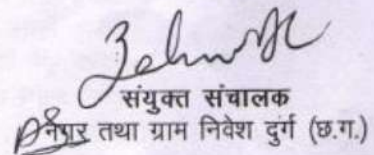 संयुक्त संचालक
नगर तथा ग्राम निवेश दुर्ग (छ.ग.)